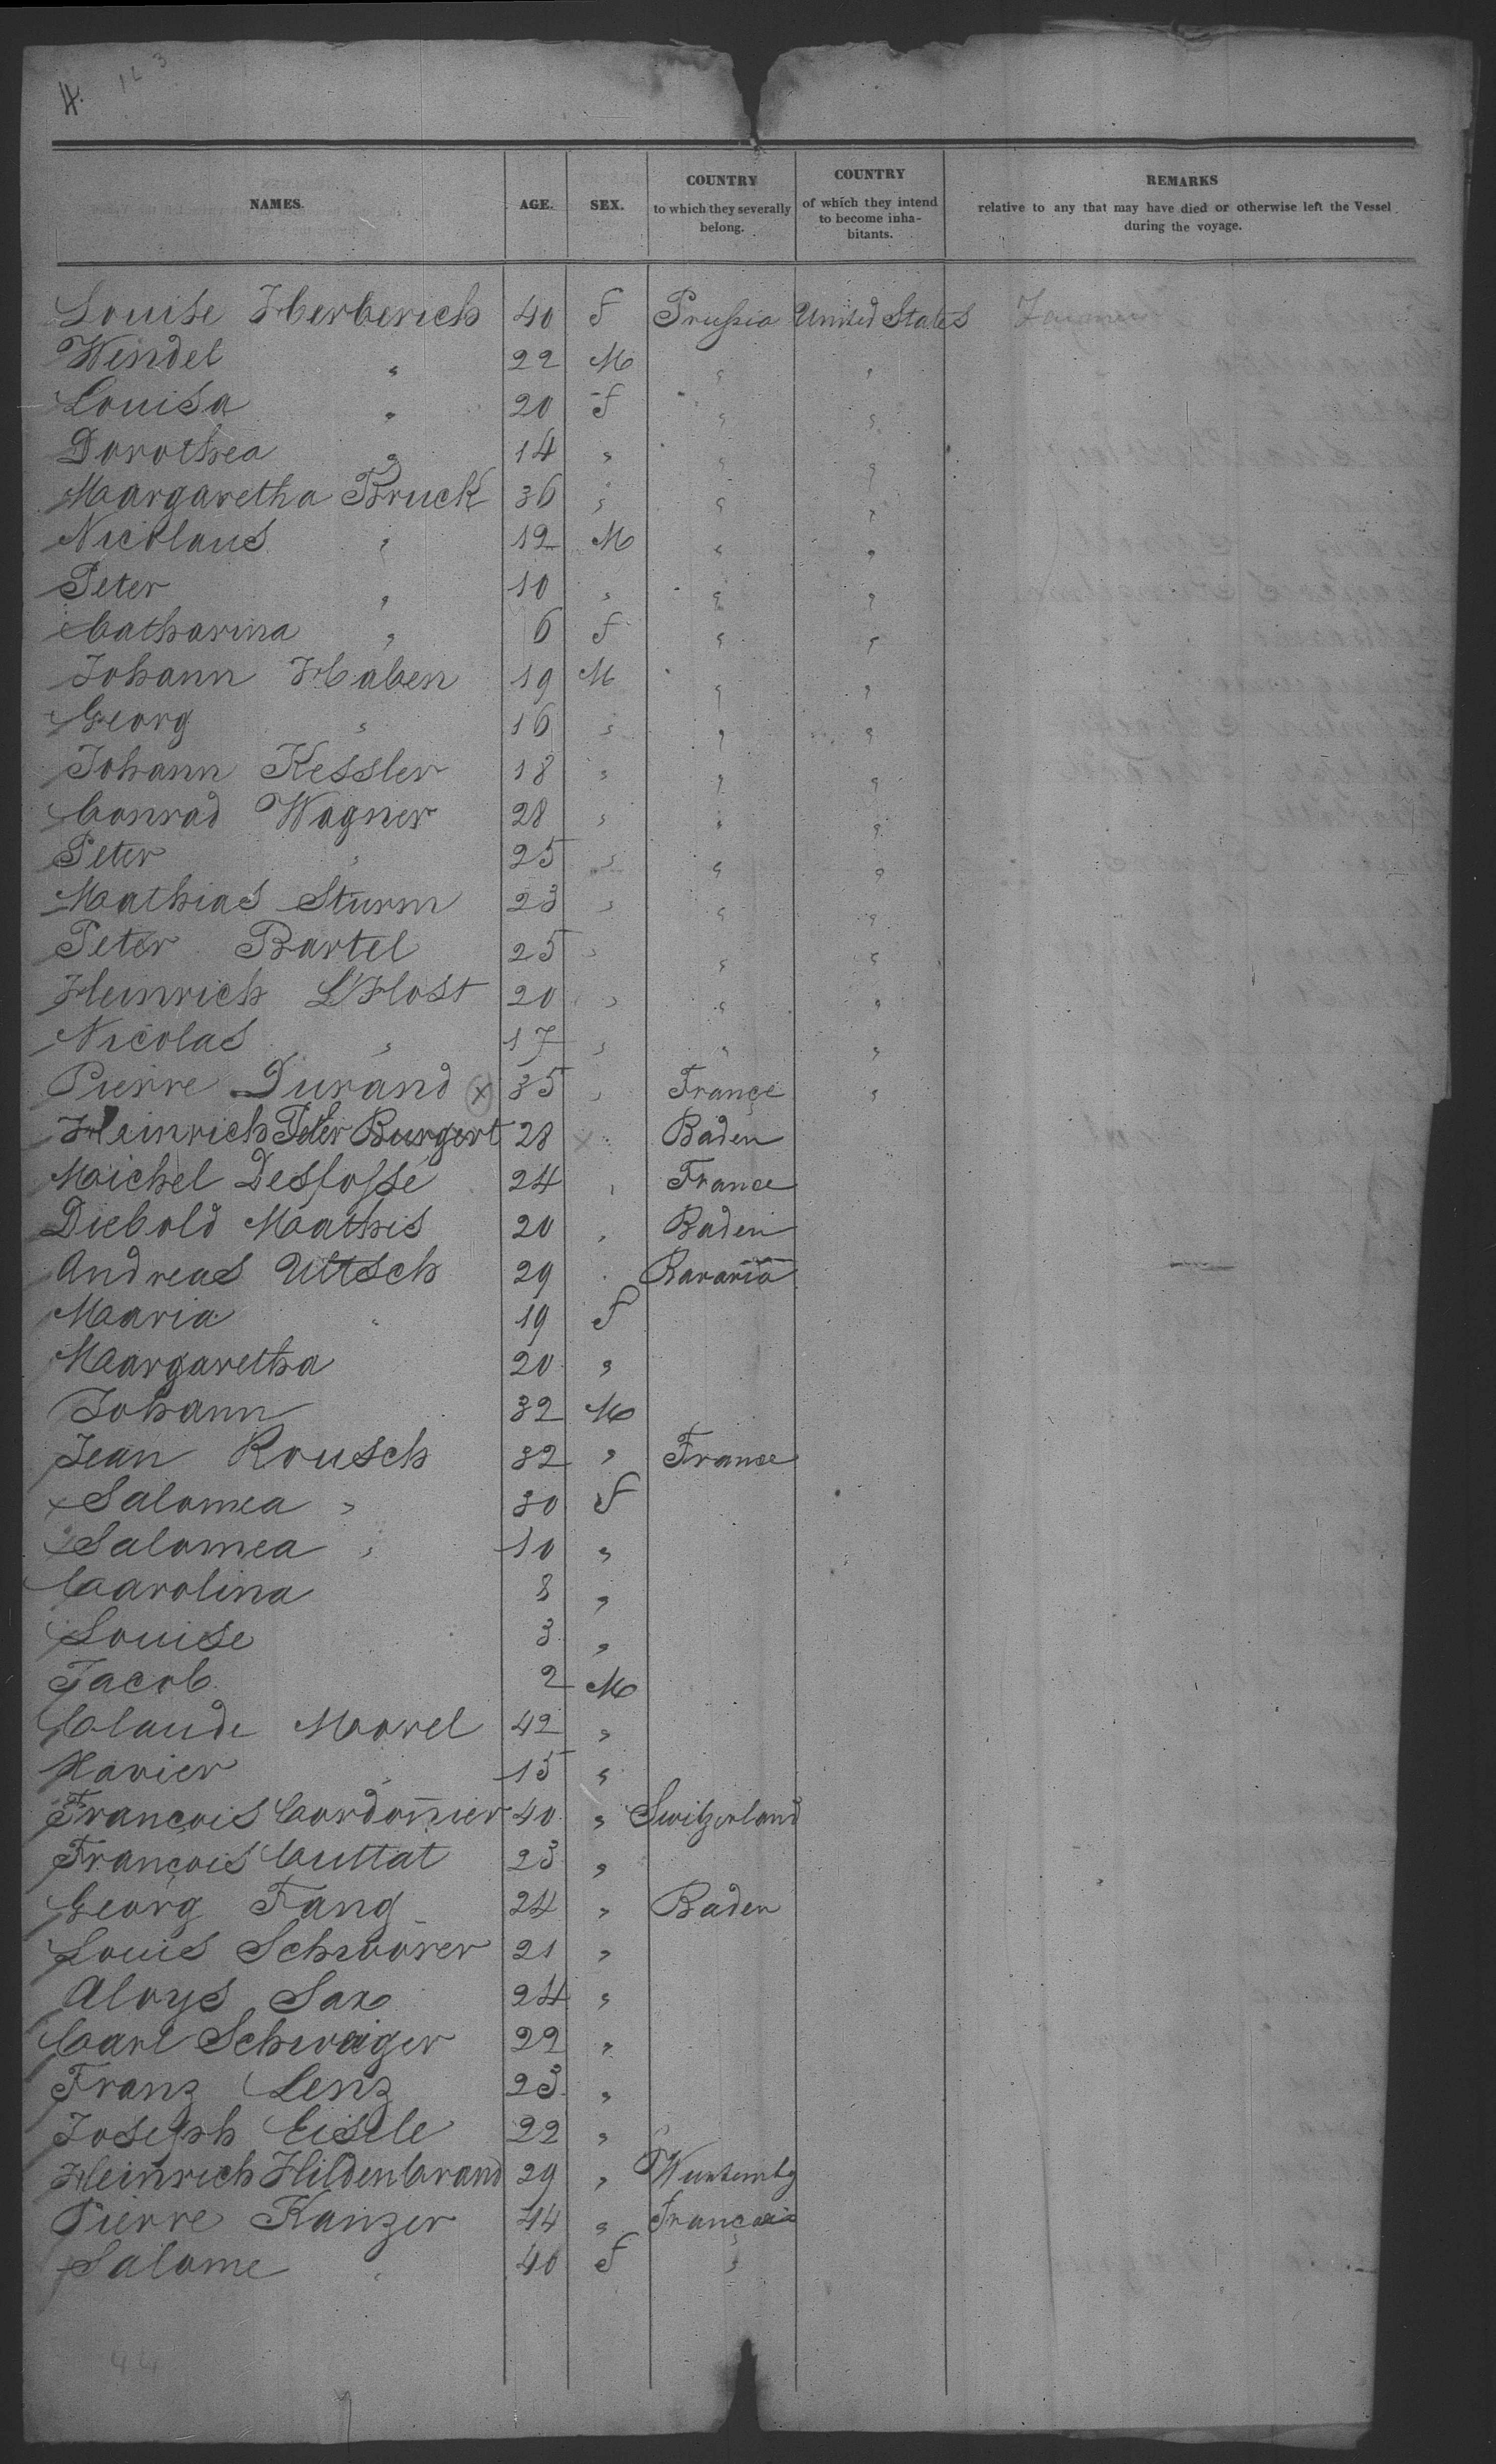 4. 123
NAMES. AGE. SEX. COUNTRY to which they severally belong. COUNTRY of which they intend to become inhabitants. REMARKS relative to any that may have died or otherwise left the Vessel during the voyage.
Louise Herberich 40 f Prussia United States
Wendel " 22 M " "
Louisa " 20 f " "
Dorothea " 14 " " "
Margaretha Bruck 36 " " "
Nicolaus " 12 M " "
Peter " 10 " " "
Catharina " 6 f " "
Johann Haben 19 M " "
Georg " 16 " " "
Johann Kessler 18 " " "
Conrad Wagner 28 " " "
Peter " 25 " " "
Mathias Sturm 23 " " "
Peter Bartel 25 " " "
Heinrich L'Host 20 " " "
Nicolas " 17 " " "
Pierre Durand x 35 " France "
Heinrich Peter Burgert 28 x " Baden
Michel Desfosse 24 " France
Diebold Mathis 20 " Baden
Andreas Ultsch 29 " Bavaria
Maria " 19 f
Margaretha 20 "
Johann 32 M
Jean Rousch 32 " France
Salomea " 30 f
Salomea " 10 "
Carolina 8 "
Louise 3 "
Jacob 2 M
Claude Morel 42 "
Xavier " 15 "
François Cordonier 40 " Switzerland
François Cuttat 23 "
Georg Fang 24 " Baden
Louis Schworer 21 "
Aloys Sax 24 "
Carl Schwaiger 22 "
Franz Lenz 23 "
Joseph Eisele 22 "
Heinrich Hildenbrand 29 " Wurtembg
Pierre Kanzer 44 " Français
Salome " 40 f "
44